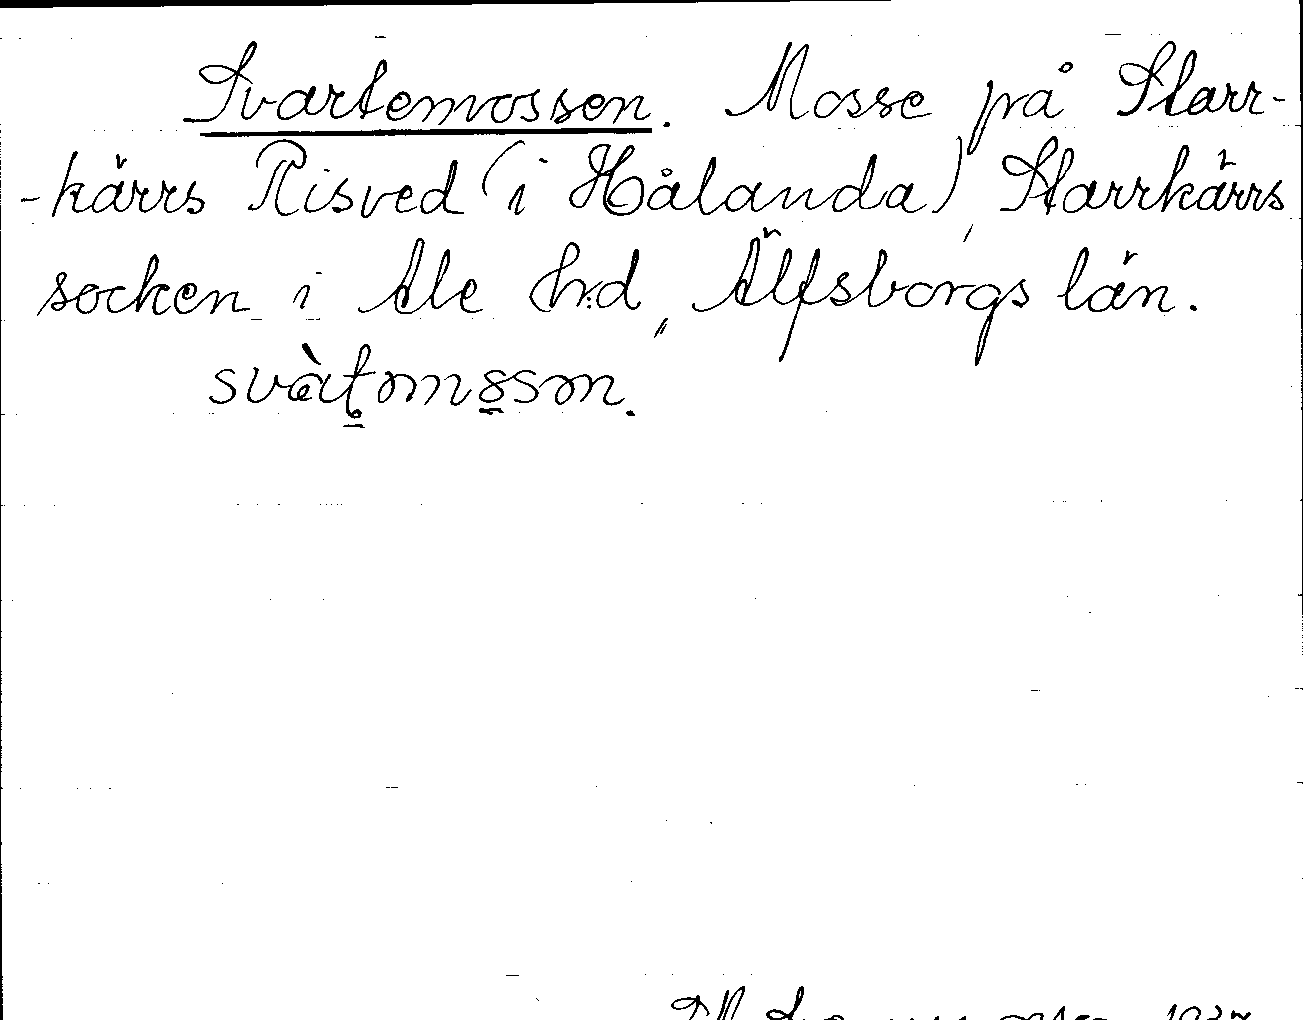 Svartemossen. Mosse på Starr-
-kärrs Risved (i Hålanda), Starrkärrs
socken i Ale h:d, Älfsborgs län.
svàtmo̱ssn.